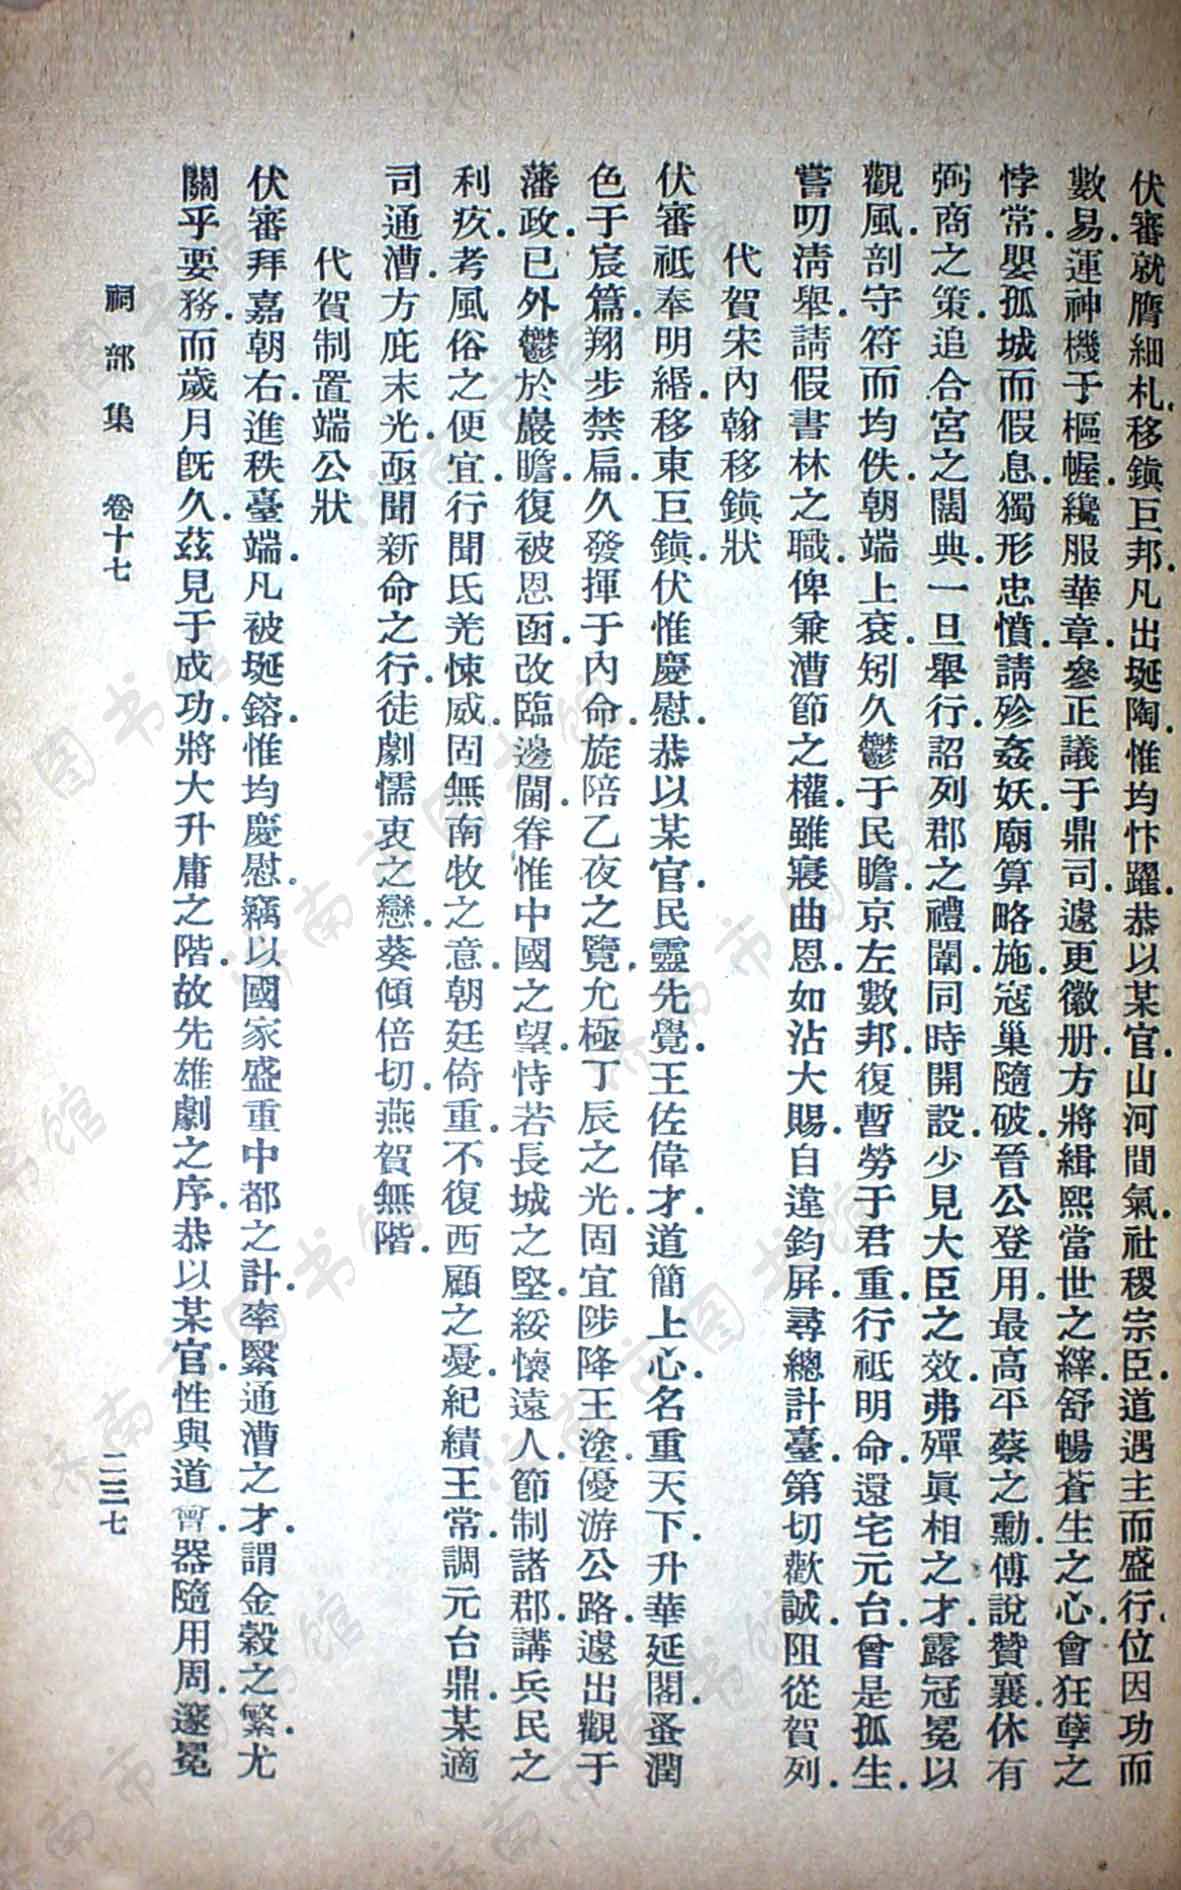 伏審就膺細札.移鎮巨邦.凡出埏陶.惟均忭躍.恭以某官.山河間氣.社稷宗臣.道遇主而盛行.位因功而
數易.運神機于樞幄.纔服華章.參正議于鼎司.遽更徽册.方將緝熙當世之縡.舒暢蒼生之心.會狂孽之
悖常.嬰孤城而假息.獨形忠憤.請殄姦妖.廟算略施.寇巢隨破.晉公登用.最高平蔡之勳.傅說贊襄.休有
弼商之策.追合宮之闊典.一旦舉行.詔列郡之禮闈.同時開設.少見大臣之效.弗殫眞相之才.露冠冕以
觀風.剖守符而均佚.朝端上袞.矧久鬱于民瞻.京左數邦.復暫勞于君重.行祗明命.還宅元台.曾是孤生.
嘗叨淸舉.請假書林之職.俾兼漕節之權.雖寢曲恩.如沾大賜.自違鈞屏.尋總計臺.第切歡誠.阻從賀列.
代賀宋內翰移鎮狀
伏審祗奉明緡.移東巨鎮.伏惟慶慰.恭以某官.民靈先覺.王佐偉才.道簡上心.名重天下.升華延閣.蚤潤
色于宸篇.翔步禁扁.久發揮于內命.旋陪乙夜之覽.允極丁辰之光.固宜陟降王塗.優游公路.遽出觀于
藩政.已外鬱於巖瞻.復被恩函.改臨邊閫.眷惟中國之望.恃若長城之堅.綏懷遠人.節制諸郡.講兵民之
利疚.考風俗之便宜.行聞氐羌悚威.固無南牧之意.朝廷倚重.不復西顧之憂.紀績王常.調元台鼎.某適
司通漕.方庇末光.亟聞新命之行.徒劇懦衷之戀.葵傾倍切.燕賀無階.
代賀制置端公狀
伏審拜嘉朝右.進秩臺端.凡被埏鎔.惟均慶慰.竊以國家盛重中都之計.率繄通漕之才.謂金穀之繁.尤
關乎要務.而歲月旣久.茲見于成功.將大升庸之階.故先雄劇之序.恭以某官.性與道會.器隨用周.邃冕
祠部集 卷十七 二三七